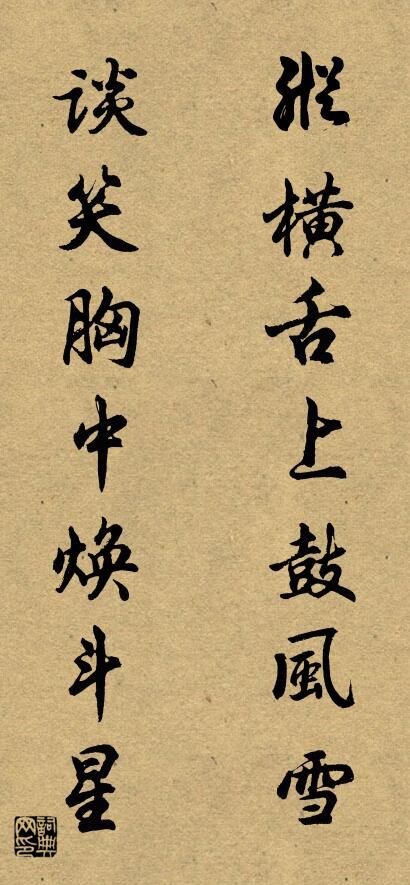 縱横舌上鼓風雪
談笑胸中焕斗星
詞典网印